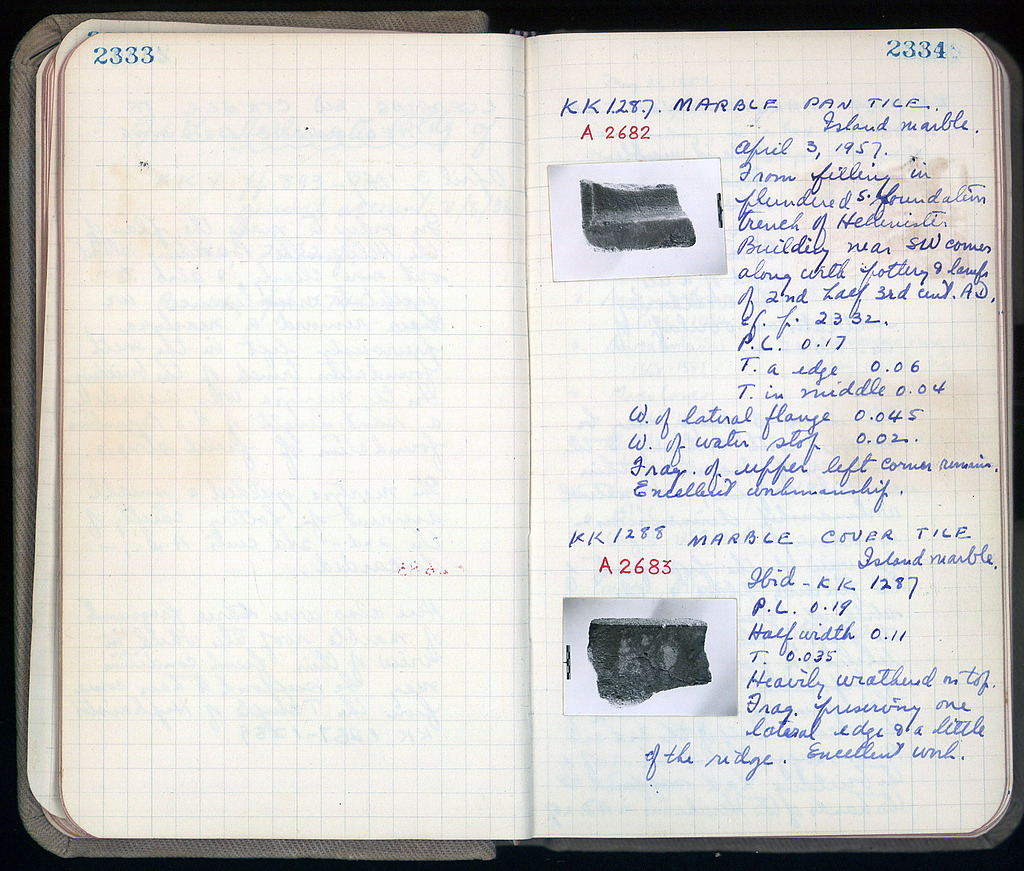 2333
2334
KK 1287. MARBLE PAN TILE.
Island marble.
A 2682
April 3, 1957.
From filling in
plundered S. foundation
trench of Hellenistic
Building near SW corner
along with pottery & lamps
of 2nd half 3rd cent. A.D.
Cf. p. 2332.
P.L. 0.17
T. a edge 0.06
T. in middle 0.04
W. of lateral flange 0.045
W. of water stop 0.02.
Frag. of upper left corner remains.
Excellent workmanship.
KK 1288 MARBLE COVER TILE
Island marble.
A 2683
Ibid - KK 1287
P.L. 0.19
Half width 0.11
T. 0.035
Heavily weathered on top.
Frag. preserving one
lateral edge & a little
of the ridge. Excellent work.